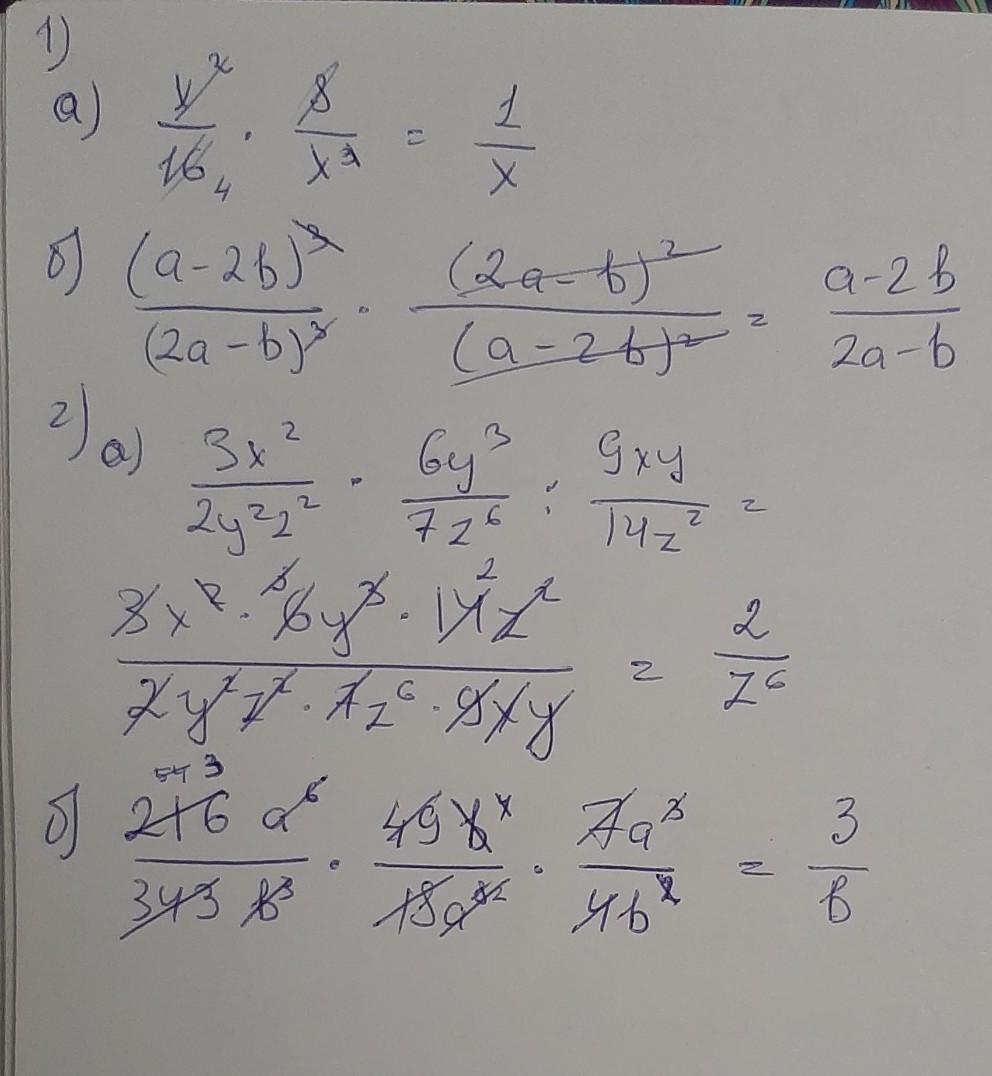 1)
а) x²/16 4 · 8/x³ = 1/x
б) (a-2b)³/(2a-b)³ · (2a-b)²/(a-2b)² = a-2b/2a-b
2) а) 3x²/2y²z² · 6y³/7z⁶ : 9xy/14z² =
3x² · 6y³ · 14 2 z²/2y²z² · 7z⁶ · 9xy = 2/z⁶
54 3
б) 216 a⁶/343 b³ · 49 b⁴/18a · 7a³/4b² = 3/b